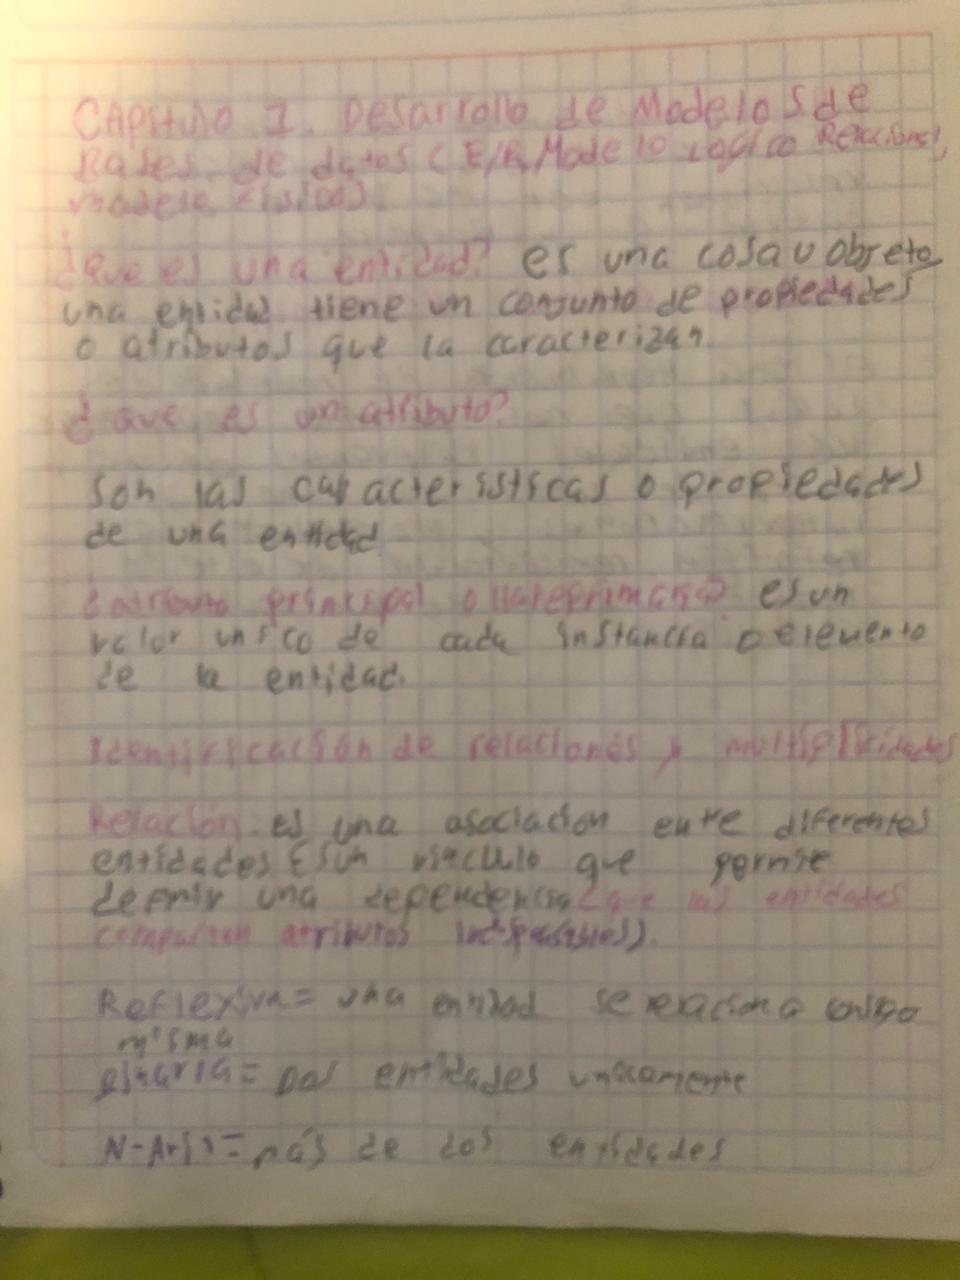 Capitulo 1. Desarrollo de Modelos de
Bases de datos (E/R, Modelo Logico Relacional,
modelo Fisico).
¿Que es una entidad? es una cosa u objeto
una entidad tiene un conjunto de propiedades
o atributos que la caracterizan.
¿que es un atributo?
son las caracteristicas o propiedades
de una entidad
¿atributo principal o llave primaria? es un
valor unico de cada instancia o elemento
de la entidad.
Identificación de relaciones y multiplicidades
Relación es una asociacion entre diferentes
entidades Es un vinculo que permite
definir una dependencia (que las entidades
compartan atributos
Reflexiva = una entidad se relaciona consigo
misma
Binaria = Dos entidades unicamente
N-Aria = más de dos entidades